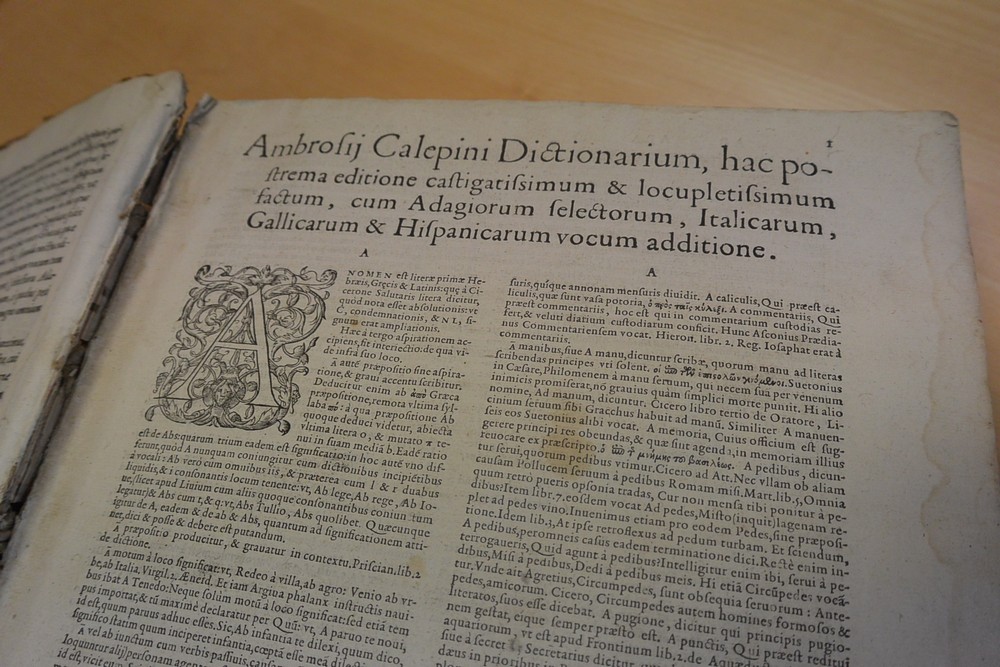 1
Ambrosij Calepini Dictionarium, hac po-
strema editione castigatissimum & locupletissimum
factum, cum Adagiorum selectorum, Italicarum,
Gallicarum & Hispanicarum vocum additione.
A
NOMEN est literæ primæ He-
bræis, Græcis & Latinis: quę à Ci-
cerone Salutaris litera dicitur,
quòd nota esset absolutionis: vt
C, condemnationis, & NL, si-
gnum erat ampliationis.
Hæc à tergo aspirationem ac-
cipiens, fit interiectio: de qua vi-
de infrà suo loco.
A autē præpositio sine aspira-
tione, & graui accentu scribitur.
Deducitur enim ab ἀπὸ Græca
præpositione, remota vltima syl-
laba πὸ: à qua præpositione Ab
quoque deduci videtur, abiecta
vltima litera o, & mutato π te-
nui in suam mediā b. Eadē ratio
est de Abs: quarum trium eadem est significatio: in hoc autē vno dif-
ferunt, quòd A nunquam coniungitur cum dictionibus incipiētibus
à vocali: Ab verò cum omnibus iis, & præterea cum l & r duabus
liquidis, & i consonantis locum tenente: vt, Ab lege, Ab rege, Ab Io-
ue, (licet apud Liuium cum aliis quoque consonantibus coniunctum
legitur) & Abs cum t, & q: vt, Abs Tullio, Abs quolibet. Quæcunque
igitur de A, eadem & de ab & Abs, quantum ad significationem atti-
net, dici & posse & debere est putandum.
A præpositio producitur, & grauatur in contextu. Priscian. lib. 2
de dictione.
A motum à loco significat: vt, Redeo à villa, ab agro: Venio ab vr-
be, ab Italia. Virgil. 2. Æneid. Et iam Argiua phalanx instructis naui-
bus ibat A Tenedo: Neque solùm motū à loco significat: sed etiā tem
pus importat, & tū maximè declaratur per Quū: vt, A paruo te noui,
id est, quum paruus adhuc esses. Sic, Ab infantia te dilexi, quum dico,
significo statim quum inciperet infantia, cœpta esse mea dilectio.
A vel ab iunctum cum verbis passiuis, causam
loquuntur alij personam agentem
id est, vicit eum
A
suris, quisque annonam mensuris diuidit. A caliculis, Qui præest ca-
liculis, quæ sunt vasa potoria, ὁ πρὸς ταῖς κύλιξι. A commentariis, Qui
præest commentariis, hoc est qui in commentarium custodias re-
fert, & veluti diarium custodiarum conficit. Hunc Asconius Prædia-
nus Commentariensem vocat. Hieron. lib. 2. Reg. Iosaphat erat à
commentariis.
A manibus, siue A manu, dicuntur scribæ, quorum manu ad literas
scribendas principes vti solent. Suetonius
in Cæsare, Philomenen à manu seruum, qui necem sua per venenum
inimicis promiserat, nō grauius quàm simplici morte puniit. Hi alio
nomine, Ad manum, dicuntur. Cicero libro tertio de Oratore, Li-
cinium seruum sibi Gracchus habuit ad manū. Similiter A manuen-
seis eos Suetonius alibi vocat. A memoria, Cuius officium est sug-
gerere principi res obeundas, & quæ sint agenda, in memoriam illius
reuocare ex præscripto. ὁ ἐπὶ τῆς μνήμης τοῦ βασιλέως. A pedibus, dicun-
tur serui, quorum pedibus vtimur. Cicero ad Att. Nec vllam ob aliam
causam Pollucem seruum à pedibus Romam misi. Mart. lib. 5, Omnia
quum retrò pueris opsonia tradas, Cur non mensa tibi ponitur à pe-
dibus: Item libr. 7. eosdem vocat Ad pedes, Misto (inquit) lagenam re-
plet ad pedes vino. Inuenimus etiam pro eodem Pedes, sine præposi-
tione. Idem lib. 3, At ipse retroflexus ad pedum turbam. Et sciendum,
A pedibus, per omneis casus eadem terminatione dici. Rectè enim in-
terrogaueris, Quid agunt à pedibus? Intelligitur enim ibi, serui à pe-
dibus, Misi à pedibus, Dedi à pedibus meis. Hi etiā Circūpedes vocā-
tur. Vnde ait Agretius, Circumpedes, sunt obsequia seruorum: Ante-
pedes, amicorum. Cicero, Circumpedes autem homines formosos &
literatos, suos esse dicebat. A pugione, dicitur qui principis pugio-
nem gestat, eique semper præsto est. A punctis, Qui
aquariorum, vt est apud Frontinum lib. 2. de Aquæd
siue à secret Secretarius dicitur
dæus in prioribus